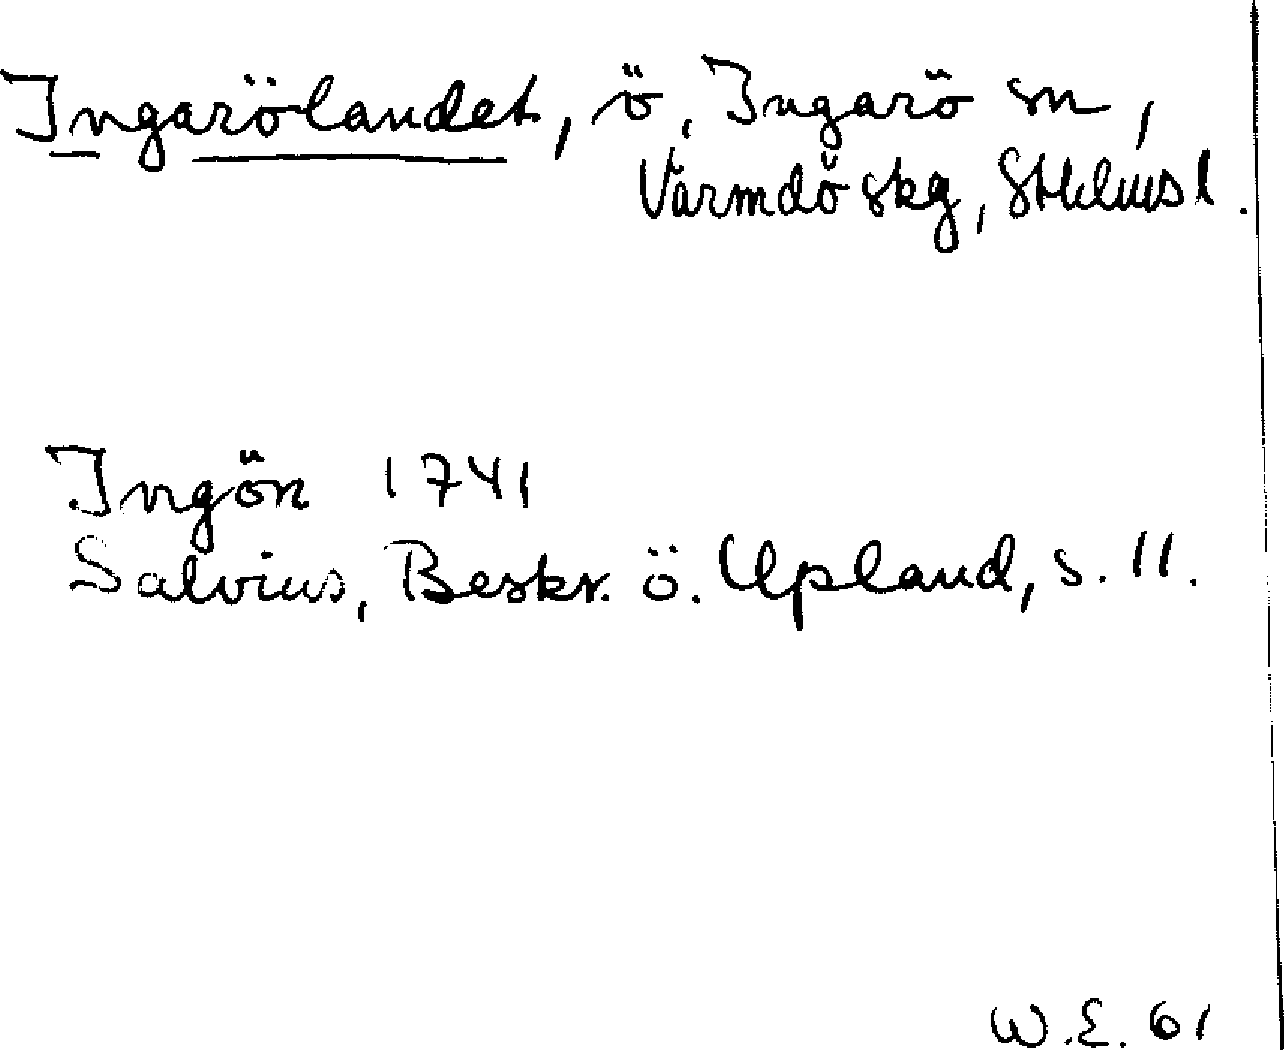 Ingarölandet, ö, Ingarö sn,
Värmdö skg, Sthlms l.
Ingön 1741
Salvius, Beskr. ö. Upland, s. 11.
W.E. 61